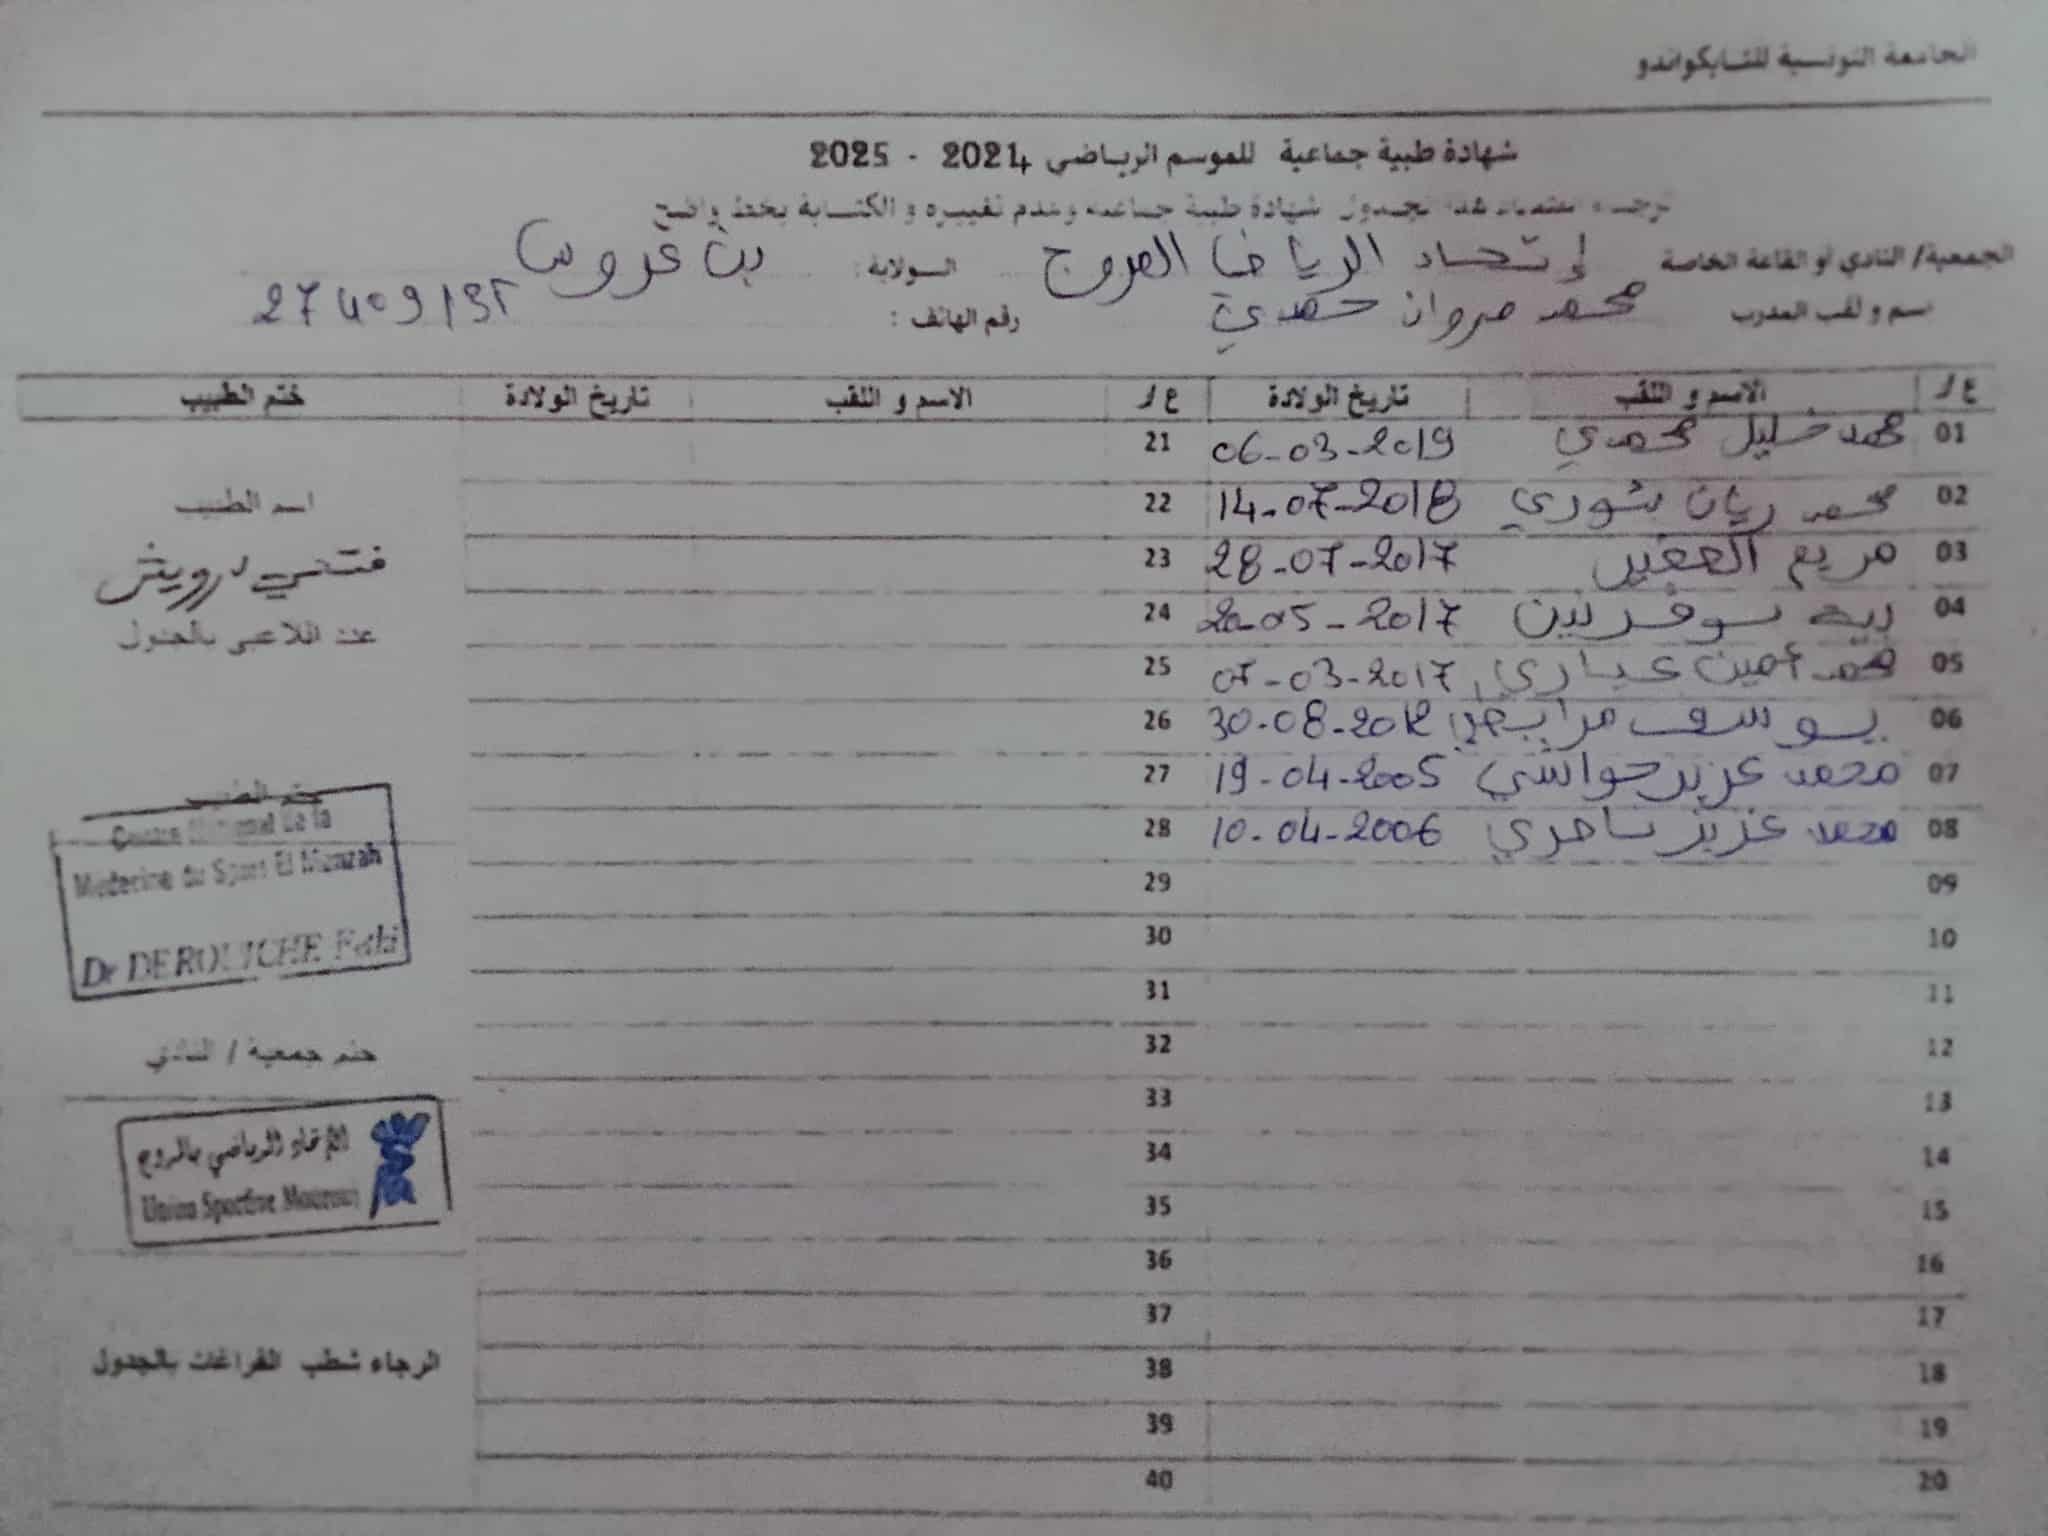 الجامعة التونسية للتايكواندو
شهادة طبية جماعية للموسم الرياضي 2024 - 2025
شهادة طبية جماعية وعدم تغييره و الكتابة بخط واضح
الجمعية/ النادي أو القاعة الخاصة إتحاد الرياضي المروج الولاية: بن عروس
اسم و لقب المدرب محمد مروان حمدي رقم الهاتف :
ع / الاسم و اللقب تاريخ الولادة ع / الاسم و اللقب تاريخ الولادة ختم الطبيب
01 محمد خليل محمدي 06-03-2019 21
02 محمد ريان شوري 14-07-2018 22
اسم الطبيب
03 مريم 28-07-2017 23
فتحي درويش
04 20-05-2017 24
عدد اللاعبين بالجدول
05 محمد أمين عياري 07-03-2017 25
06 يوسف مرابطي 30-08-2012 26
07 محمد عزيز حواشي 19-04-2005 27
ختم الطبيب
08 محمد عزيز ساحري 10-04-2006 28
Centre National de la
Medecine du Sport El Manzah
Dr DEROUICHE Fethi
09 29
10 30
11 31
12 32
ختم جمعية / النادي
13 33
14 34
الإتحاد الرياضي بالمروج
Union Sportive Mourouj
15 35
16 36
17 37
18 38
الرجاء شطب الفراغات بالجدول
19 39
20 40